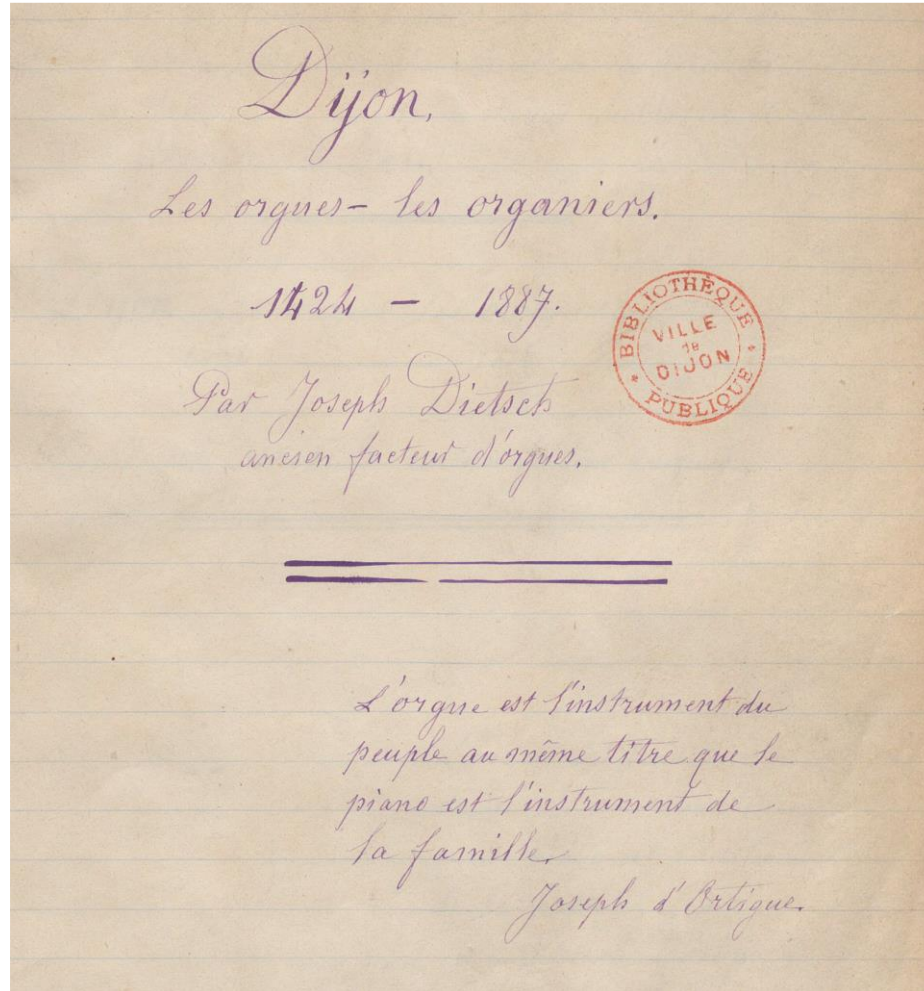 Dijon,
Les orgues - les organiers.
1424 - 1887.
BIBLIOTHÈQUE
VILLE
de
DIJON
PUBLIQUE
Par Joseph Dietsch
ancien facteur d'orgues.
L'orgue est l'instrument du
peuple au même titre que le
piano est l'instrument de
la famille.
Joseph d'Ortigue.